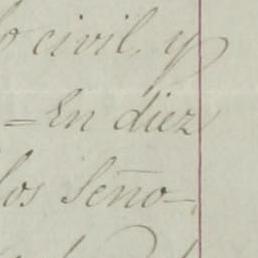 civil, y
=En diez
los Seño-